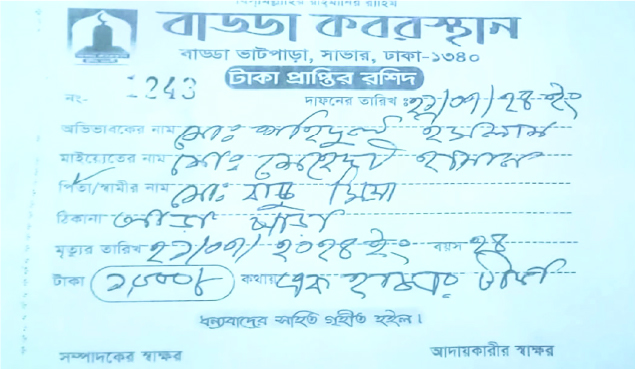 বিসমিল্লাহির রাহমানির রাহিম
বাড্ডা কবরস্থান
বাড্ডা ভাটপাড়া, সাভার, ঢাকা-১৩৪০
টাকা প্রাপ্তির রশিদ
নং- 1243 দাফনের তারিখ ঃ ২১/০৭/২৪ ইং
অভিভাবকের নাম মোঃ শহিদুল ইসলাম
মাইয়্যেতের নাম মোঃ মেহেদী হাসান
পিতা/স্বামীর নাম মোঃ বাচ্চু মিয়া
ঠিকানা পাড়া
মৃত্যুর তারিখ ২১/০৭/২০২৪ ইং বয়স ২৪
টাকা ১০০০/ কথায় এক হাজার টাকা
ধন্যবাদের সহিত গৃহীত হইল।
সম্পাদকের স্বাক্ষর আদায়কারীর স্বাক্ষর